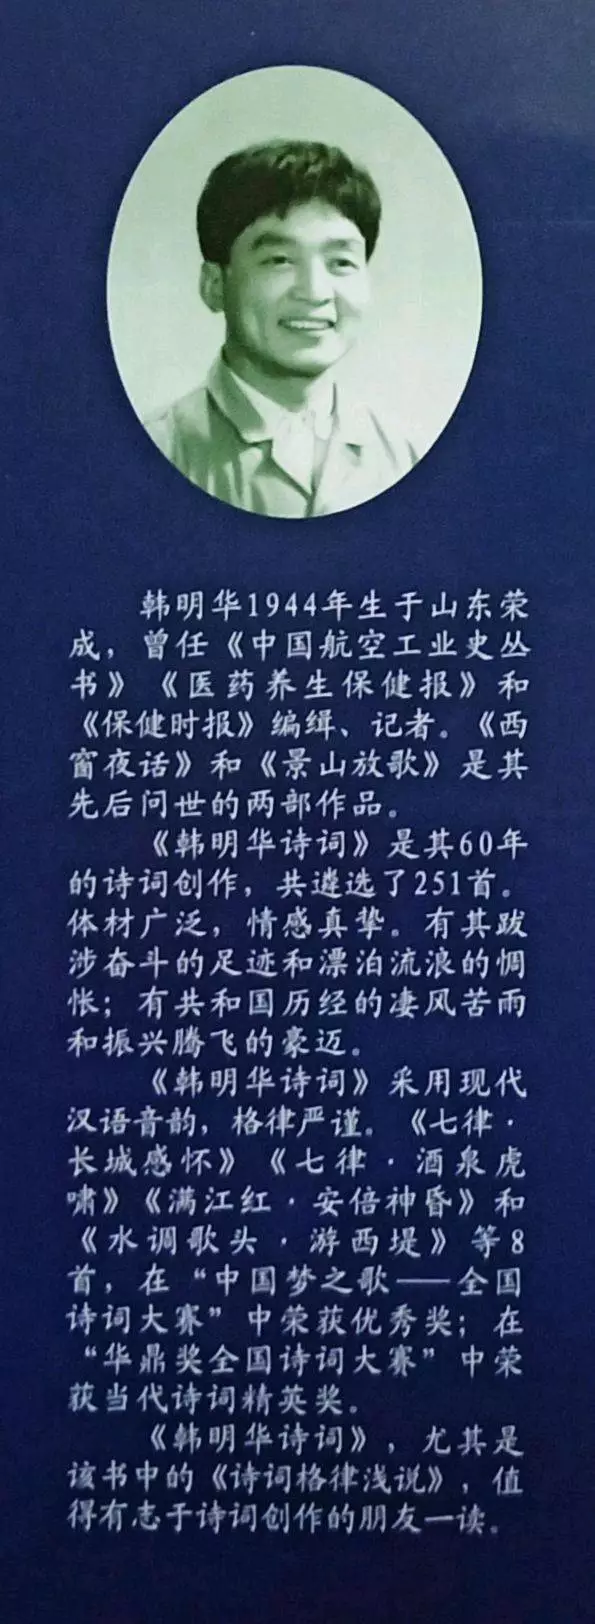 韩明华1944年生于山东荣
成，曾任《中国航空工业史丛
书》《医药养生保健报》和
《保健时报》编缉、记者。《西
窗夜话》和《景山放歌》是其
先后问世的两部作品。
《韩明华诗词》是其60年
的诗词创作，共遴选了251首。
体材广泛，情感真挚。有其跋
涉奋斗的足迹和漂泊流浪的惆
怅；有共和国历经的凄风苦雨
和振兴腾飞的豪迈。
《韩明华诗词》采用现代
汉语音韵，格律严谨。《七律·
长城感怀》《七律·酒泉虎
啸》《满江红·安倍神昏》和
《水调歌头·游西堤》等8
首，在“中国梦之歌——全国
诗词大赛”中荣获优秀奖；在
“华鼎奖全国诗词大赛”中荣
获当代诗词精英奖。
《韩明华诗词》，尤其是
该书中的《诗词格律浅说》，值
得有志于诗词创作的朋友一读。